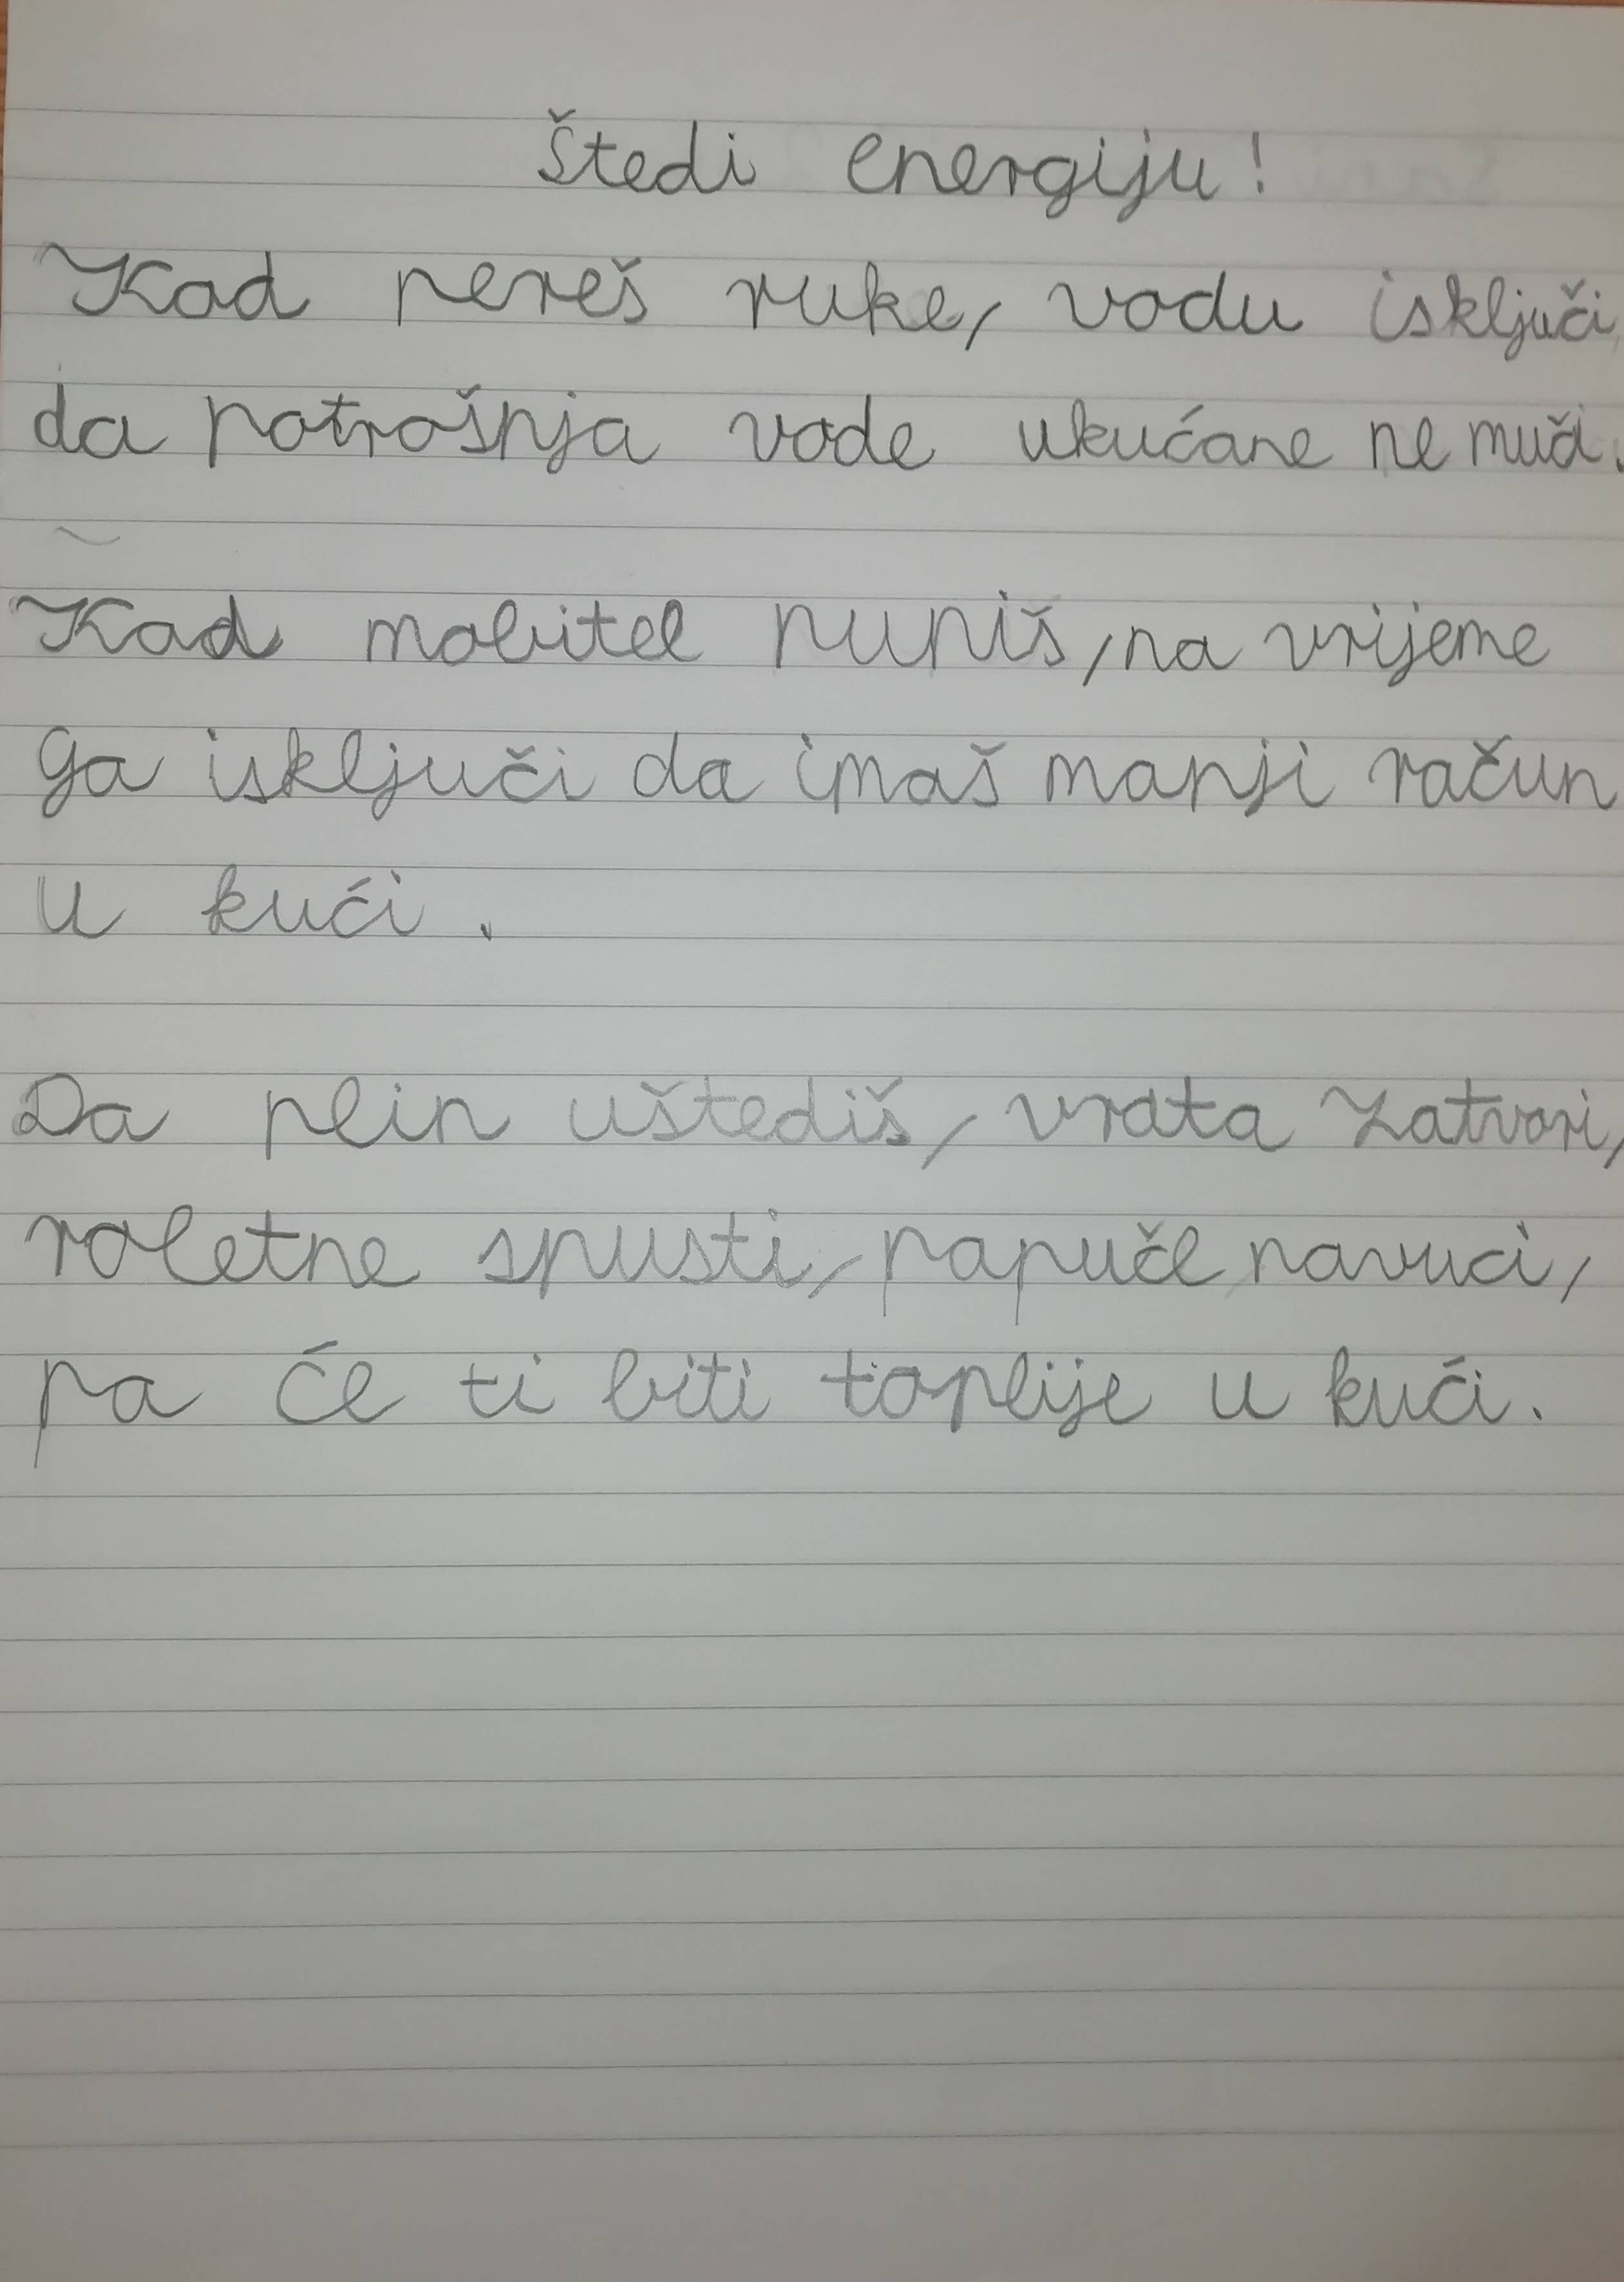 Štedi energiju!
Kad pereš ruke, vodu isključi,
da potrošnja vode ukućane ne muči.
Kad mobitel puniš, na vrijeme
ga isključi da imaš manji račun
u kući.
Da plin uštediš, vrata zatvori,
roletne spusti, papuče navuci,
pa će ti biti toplije u kući.